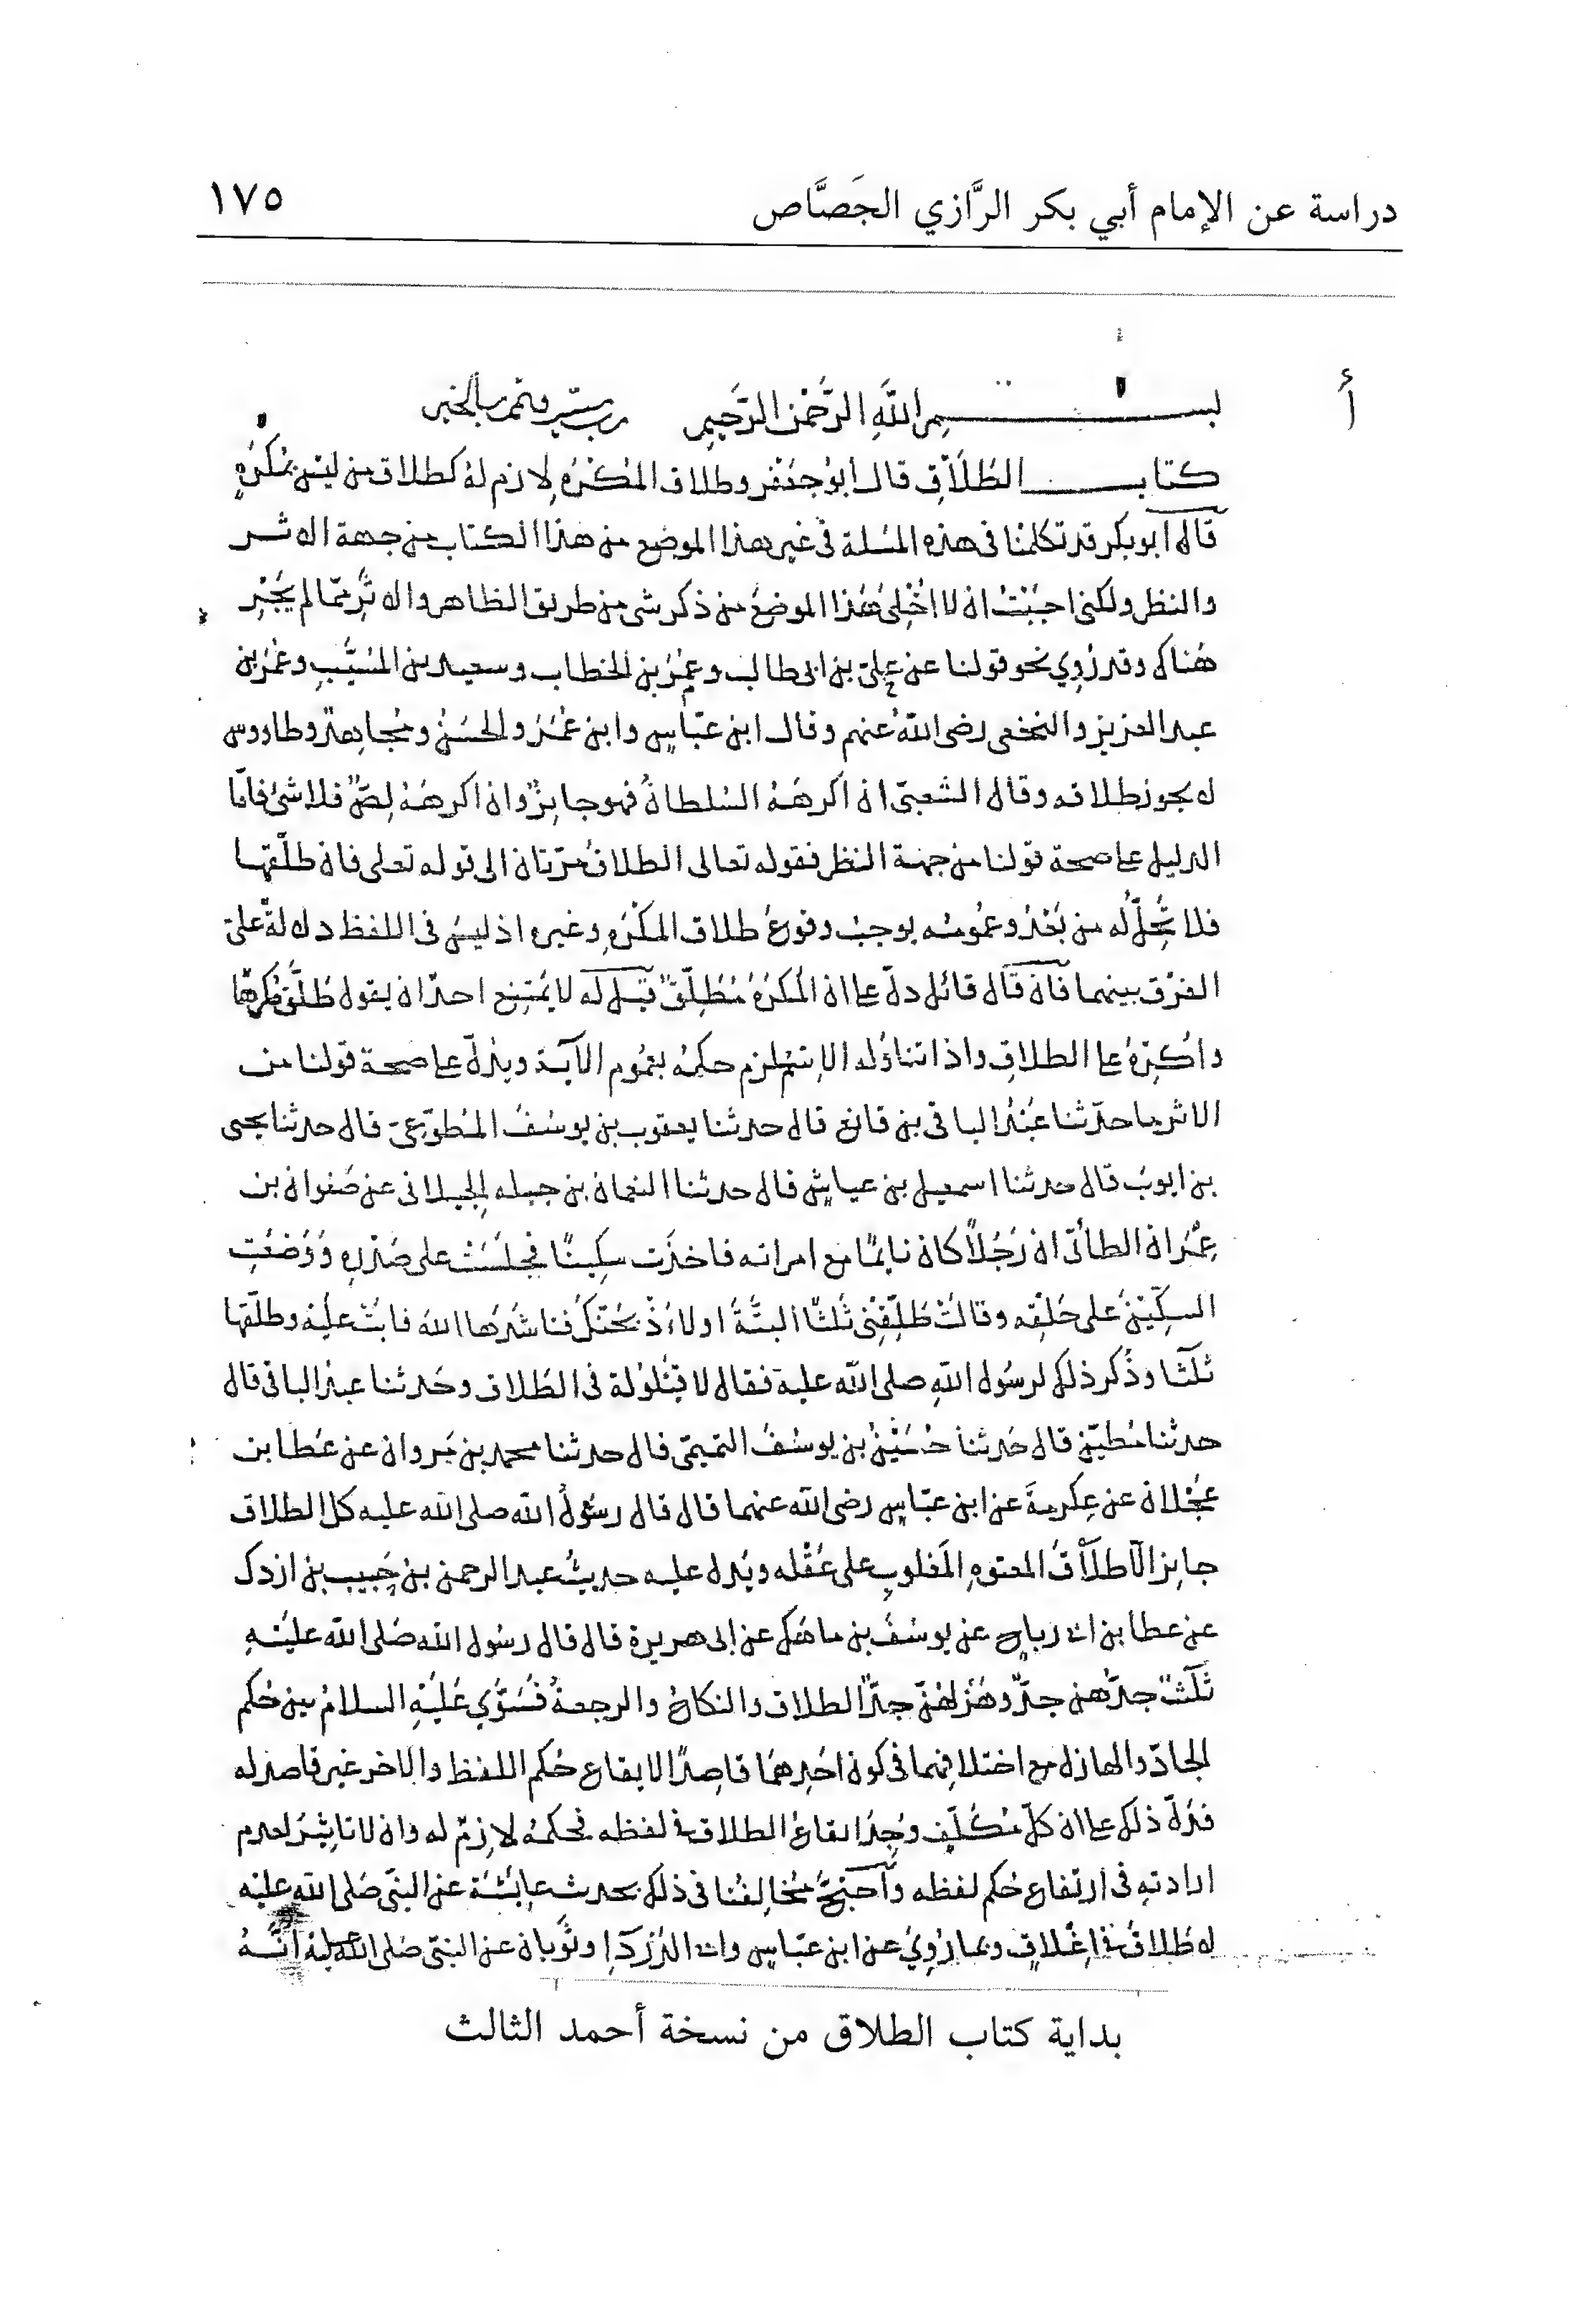 دراسة عن الإمام أبي بكر الرَّازي الجَصَّاص ١٧٥
أ
بسم اللَّهِ الرَّحْمٰن الرَّحِيمِ رب يسّر وتمم بالخير
كتاب الطَّلَاقِ قال أبو جعْفر وطلاق المُكْرَهِ لازم لهُ كطلاق من ليسَ بمُكْرَهٍ
قال أبو بكر قد تكلمنا فى هذه المسلة فى غير هذا الموضع من هذا الكتاب من جهة الاثر
والنظر ولكنى احبَبْتُ ان لا اخْلِىَ هٰذا الموضعَ من ذكر شى من طريق الظاهر والاثرِ ممّا لم يَجْرِ
هُناك وقد رُوِي نحو قولنا عن علىّ بن ابى طالب وعُمَرُ بن الخطاب وسعيد بن المُسَيَّبِ وعُمَرُ بن
عبد العزيز والنخعى رضى اللّه عنهم وقال ابن عبّاسٍ وابن عُمَرَ والحسَنُ ومُجاهدٌ وطاووس
لا يجوز طلاقه وقال الشعبىّ ان اَكرهَهُ السُلطانُ فهو جايزٌ وان اكرهَهُ لِصٌّ فلا شئَ فامّا
الدليل على صحة قولنا من جهة النظر فقوله تعالى الطلاقُ مرّتان الى قوله تعلى فان طلّقها
فلا تَحِلُّ له من بَعْدُ وعُمومُه يوجبُ وقوعَ طلاق المكْرَهِ وغيره اذ ليسَ فى اللفظ دلالةٌ على
الفَرْق بينهما فان قال قائل دلّ على ان المُكرَهُ مُطَلِّقٌ قيل له لا يَمْتنِع احدٌ ان يقول طَلَّقَ مُكرهًا
واُكرِهَ على الطلاقِ واذا تناوَله الاِسْمُ لزم حكمُه بعُموم الآية ويدُلّ على صحة قولنا من
الاثر ما حدّثنا عَبْدُ الباقى بن قانع قال حدثنا يعقوب بن يوسُفَ المُطوِّعىّ قال حدثنا يحيى
بن ايوبَ قال حدثنا اسمعيل بن عياشٍ قال حدثنا النعمان بن جبله الجيلانى عن صَفوان بن
عِمْران الطائى ان رَجُلًا كان نايمًا مع امراته فاخذَت سكِينًا فجلَسَتْ على صَدْرِهِ وَوَضَعَتِ
السكِّيْنَ على حَلْقِه وقالتْ طَلِّقْنِى ثَلثًا البتَّةَ اولاَذْبَحَنّكَ فناشَدَها اللهَ فابَتْ علَيْه وطلَّقها
ثَلَثا وذُكر ذلك لرسُول اللّهِ صلى اللّه عليه فقال لا قيْلُولةَ فى الطَلاق وحَدثنا عبدُ الباقى قال
حدثنا مُطيّن قال حَدثنا حُسَيْنُ بن يوسُفَ التميمّى قال حدثنا محمد بن مَروان عن عَطا بن
عَجْلان عن عِكرمةَ عن ابن عبّاسٍ رضى اللّه عنهما قال قال رسُولُ اللّه صلى اللّه عليه كل الطلاق
جايز الّا طلَاقُ المعتوهِ المَغلوبِ على عَقْله ويَدل عليه حديثُ عبد الرحمن بن حَبِيب بن ازدك
عن عطا بن ابى رباحٍ عن يوسُفَ بن ماهَك عن ابى هريرة قال قال رسُول اللّه صَلى اللّه عليْهِ
ثَلَثٌ جدّهُن جدٌّ وهَزْلهُنّ جدٌّ الطلاق والنكاحُ والرجعةُ فسَوَّي عَلَيْهِ السلامُ بين حُكم
الجادّ والهازل مع اختلافِهما فى كون احَدِهمَا قاصِدًا لايقاع حُكم اللفظ والاخر غير قاصد له
فدَلّ ذلك على ان كلّ مُكلّفٍ وُجِدَ ايقاعُ الطلاق فى لفظه فحكمُه لازِمٌ له وان لا تاثِيْرَ لعدم
ارادتهِ فى ارتفاع حُكم لفظه واحتجَّ مُخالِفُنا فى ذلك بحديث عايِشَة عن النبىّ صَلى اللّهِ عليْه
لا طَلاقَ فى اِغْلاقٍ وبما رُوِيَ عن ابن عبّاسٍ وابى الدَرْدَآءِ وثَوبان عن النبىّ صَلى اللّه عليه انَّهُ
بداية كتاب الطلاق من نسخة أحمد الثالث